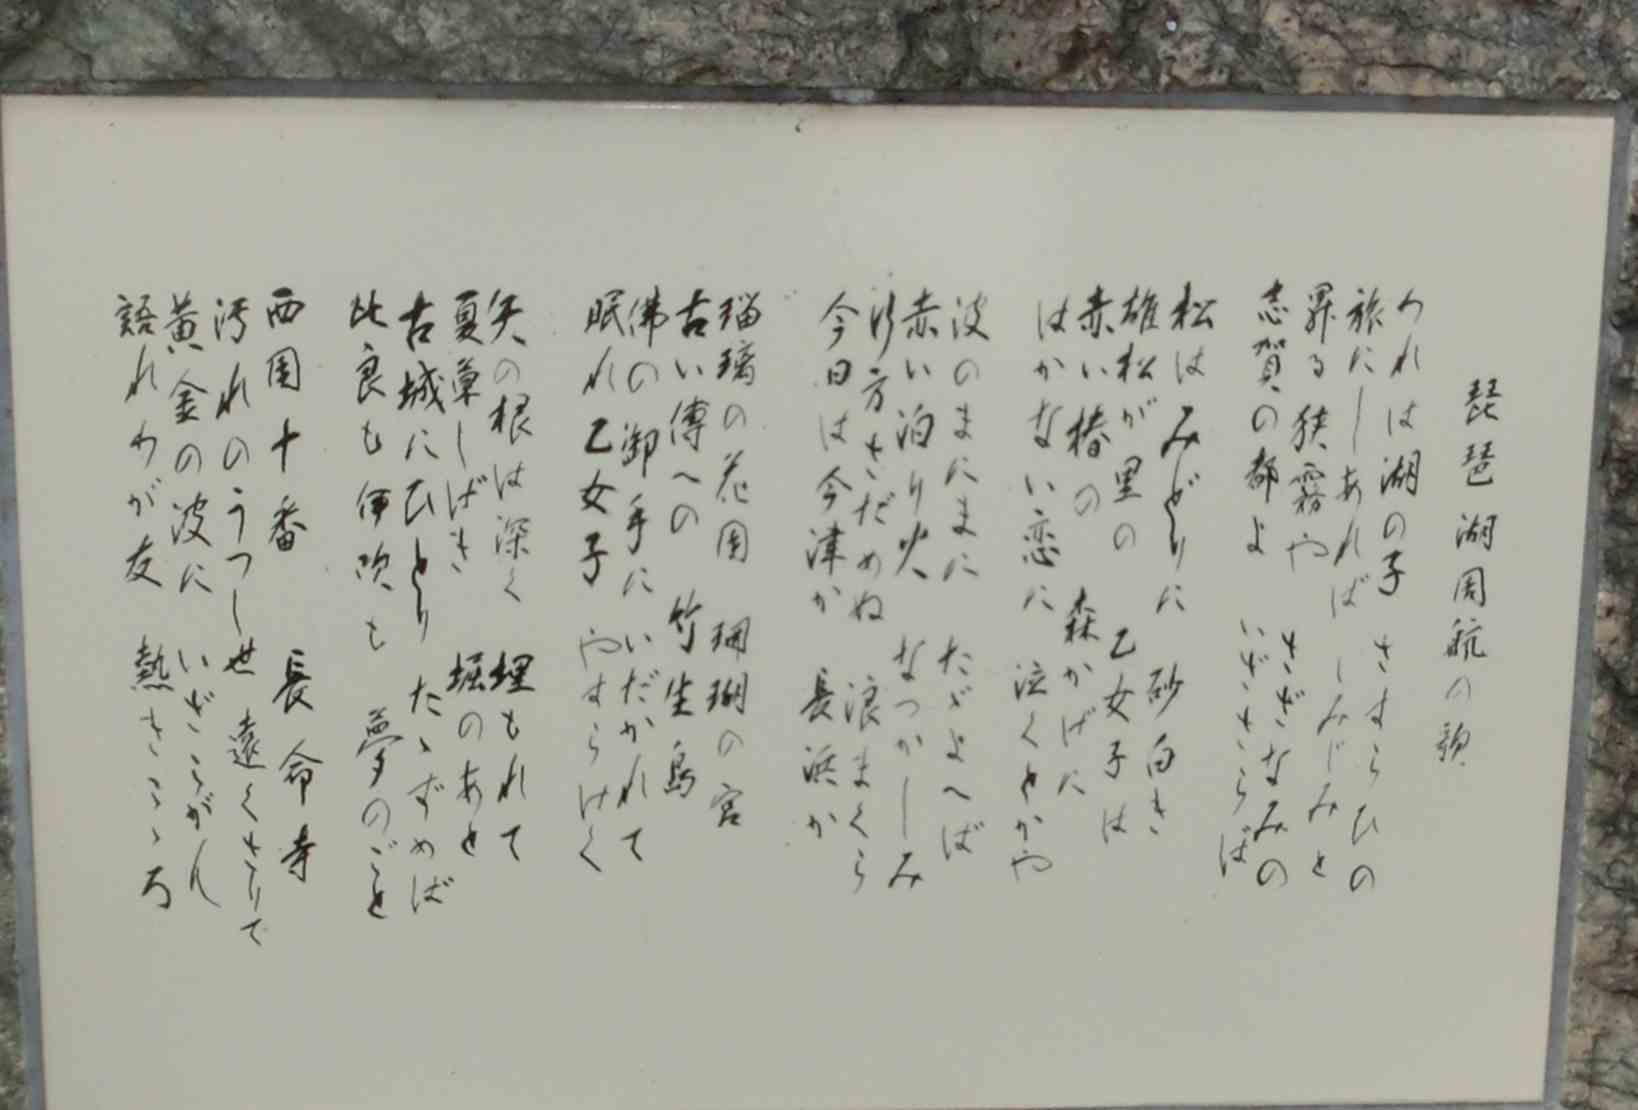 琵琶湖周航の歌
われは湖の子 さすらひの
旅にしあれば しみじみと
昇る狭霧や さざなみの
志賀の都よ いざさらば
松はみどりに 砂白き
雄松が里の 乙女子は
赤い椿の 森かげに
はかない恋に 泣くとかや
波のまにまに たゞよへば
赤い泊り火 なつかしみ
行方さだめぬ 浪まくら
今日は今津か 長浜か
瑠璃の花園 珊瑚の宮
古い傳への 竹生島
佛の御手に いだかれて
眠れ乙女子 やすらけく
矢の根は深く 埋もれて
夏草しげき 堀のあと
古城にひとり たゝずめば
比良も伊吹も 夢のごと
西国十番 長命寺
汚れのうつし世 遠くさりて
黄金の波に いざこがれ
語れわが友 熱きこゝろ